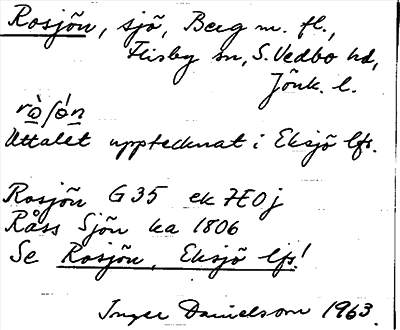 Rosjön, sjö, Berg m. fl.,
Flisby sn, S. Vedbo hd,
Jönk. l.
Uttalet upptecknat i Eksjö lfs.
Rosjön G35 ek 7E0j
Råss Sjön ka 1806
Se Rosjön, Eksjö lfs!
Inger Danielsson 1963.